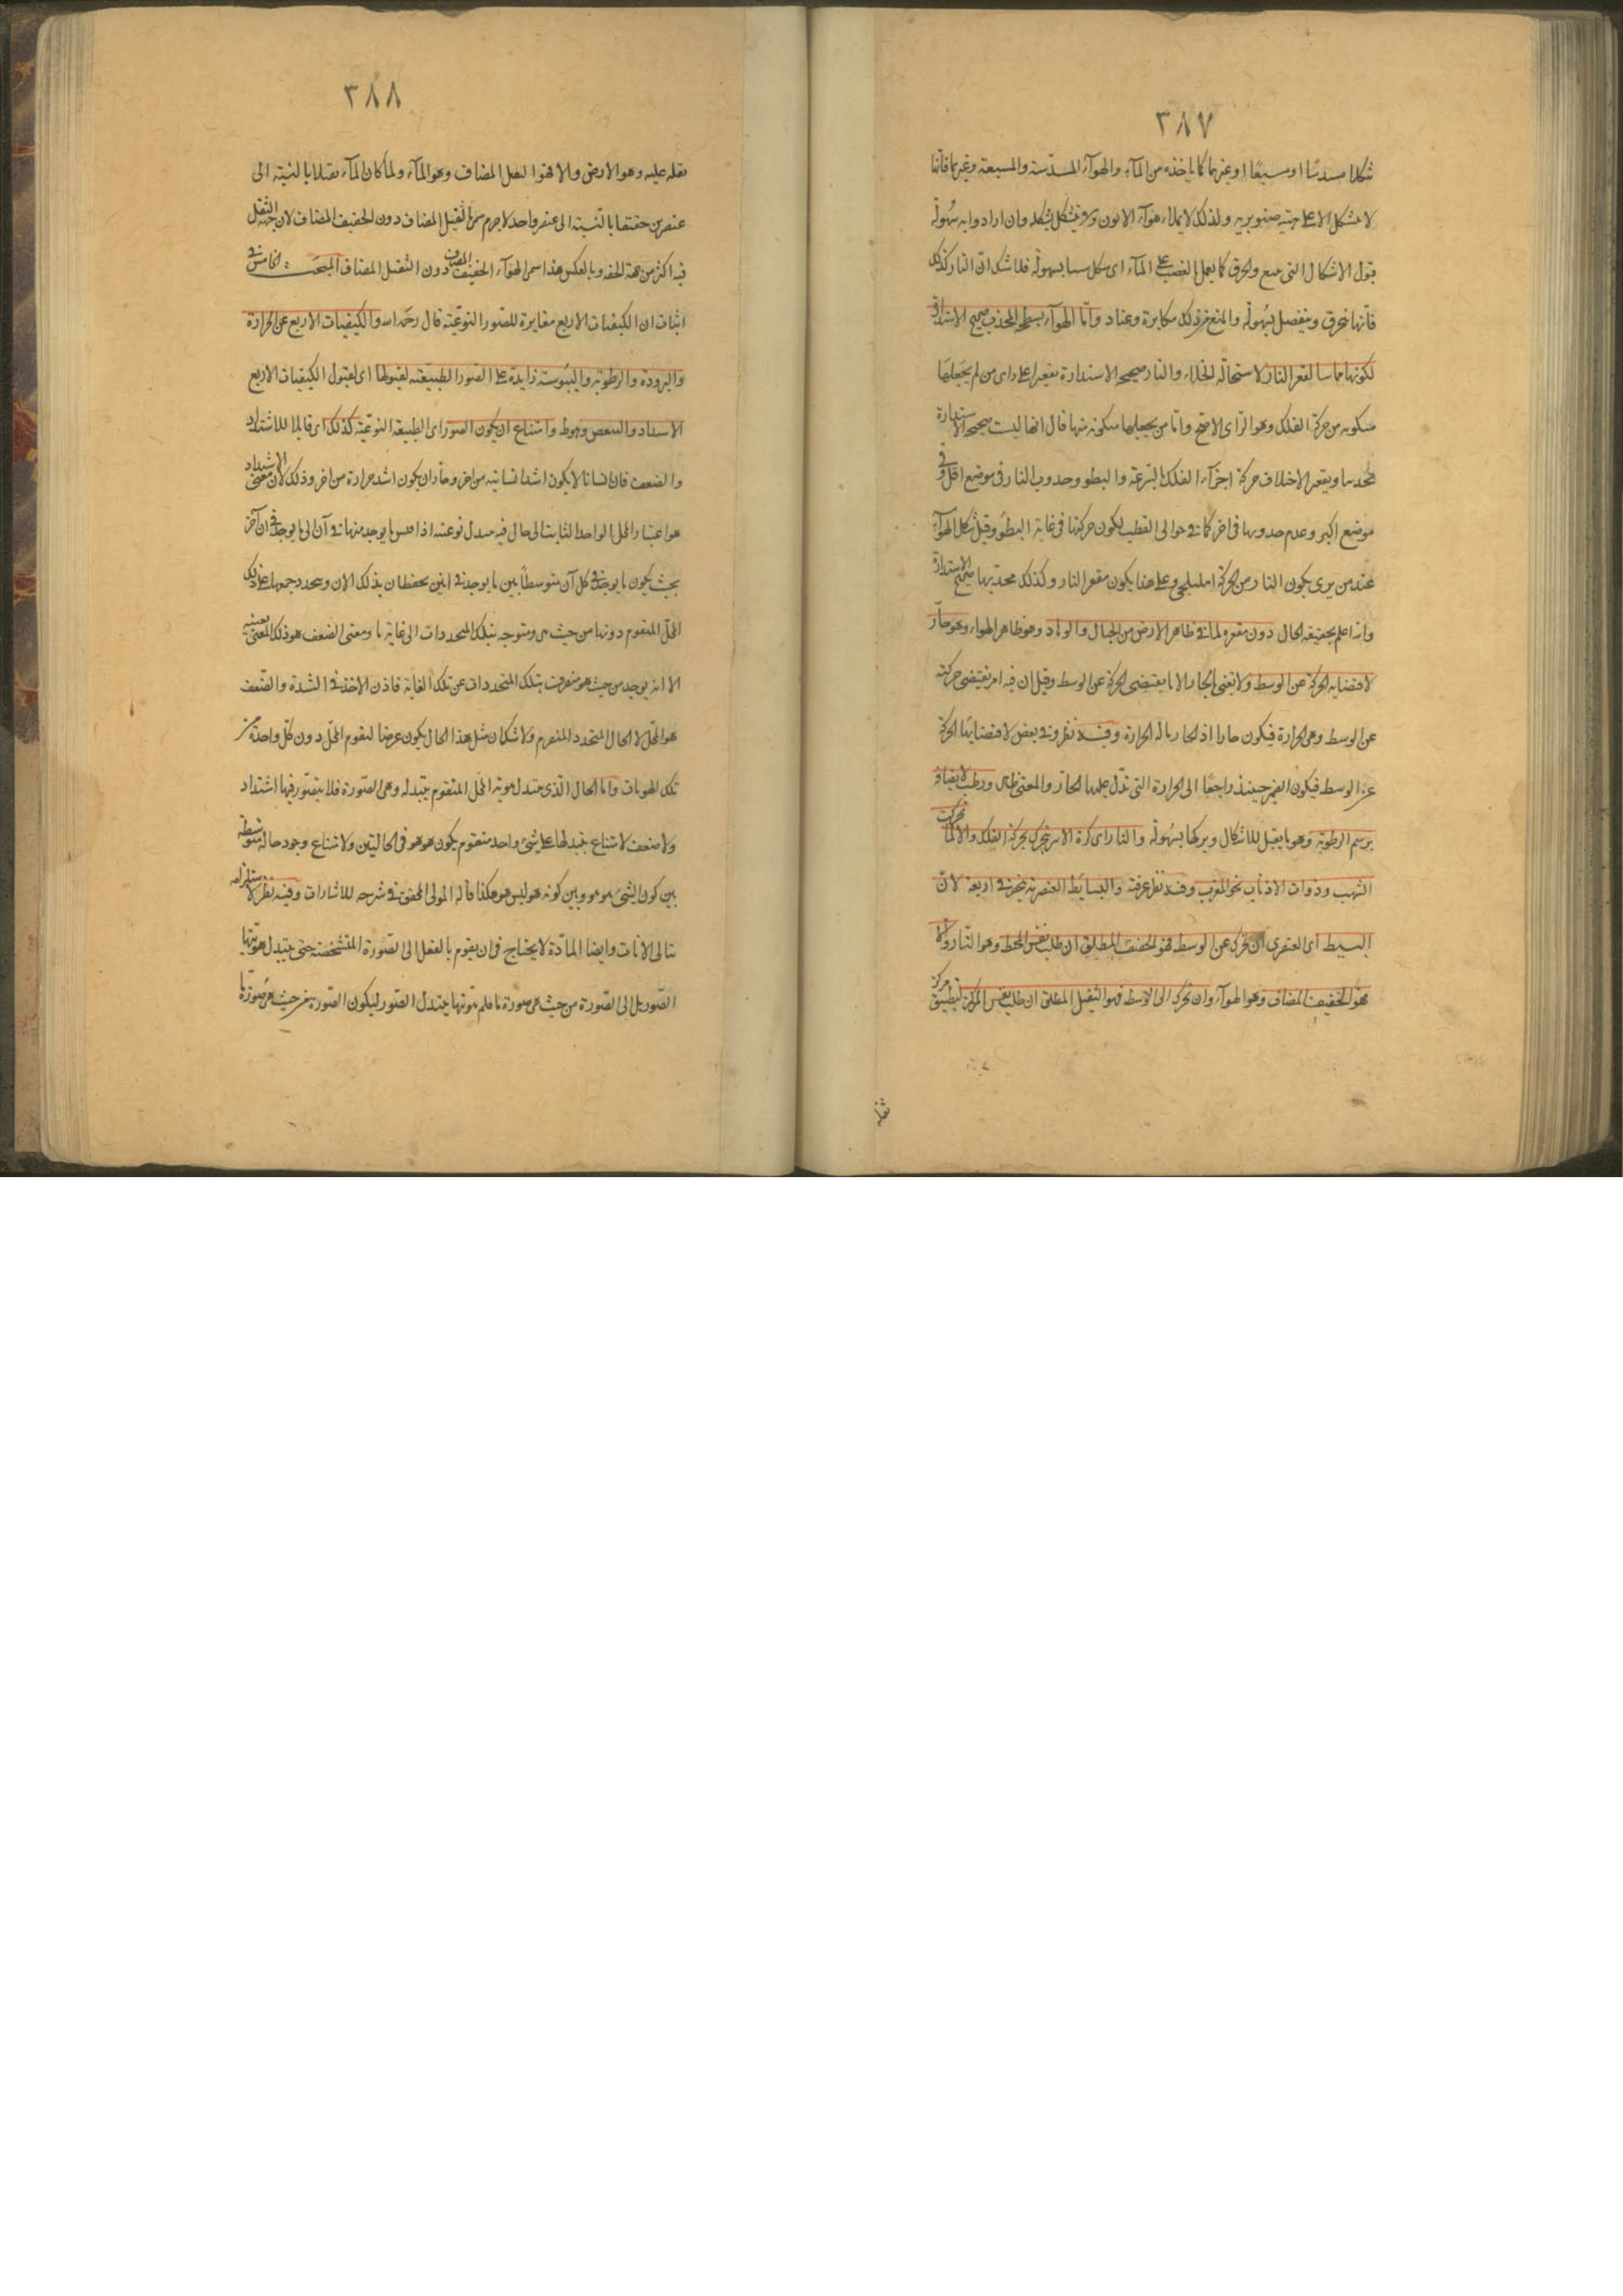 ٣٨٧
شكلا مسدسا او مسبعا او غيرهما كما ياخذه من المآء والهوآء المسدسة والمسبعة وغيرهما فاتنا
لا تشكل الا على هيئة صنوبرية ولذلك لا يملاء هوآء الاتون ويتشكل بشكله وان ارادوا به سهولة
قبول الاشكال التى مع والخرق كما يعمل الغضب على المآء اى شكل بسهولة فلا شك ان النار كذلك
فانها تنخرق وينفصل بسهولة والمنع من ذلك مكابرة وعناد وامّا الهوآء بسطحه المحدب صحيح الاستدارة
لكونها مماسا لمقعر النار لاستحالة الخلاء والنار صحيح الاستدارة بمقعرها على راى من لم يجعلها
متكونه من حركة الفلك وهو الراى الاصح وامّا من يجعلها متكونه منها قال انها ليست صحيح الاستدارة
بمحدبها وبقعر الاختلاف حركة اجزآء الفلك بالسرعة والبطو وحدوث النار فى موضع اقل وفى
موضع اكبر وعدم حدوثها فى اخر كما فى حوالى القطب لكون حركتها فى غاية البطؤ وقيل شكل الهوآء
عند من يرى يكون النار من الحركة اهليلجى وعلى هذا يكون مقعر النار وكذلك محدبها صحيح الاستدارة
والله اعلم بحقيقة الحال دون مقعره لما فى ظاهر الارض من الجبال والوهاد وهو ظاهر الهواء وهو حارّ
لاقتضايه الحركة عن الوسط ولا نعنى بالحار الا ما يقتضى الحركة عن الوسط وقيل ان فيه امر يقتضى حركته
عن الوسط وهى الحرارة فيكون حارا اذ الحار ما له الحرارة وفيه نظر وفى بعض لاقتضايها الحركة
عن الوسط فيكون الضمير حينئذ راجعا الى الحرارة التى تدل عليها الحار والمعنى ظاهر ورطب لايضاق
برسم الرطوبة وهو ما يقبل للاشكال ويتركها بسهولة والنار اى كرة الاثير تتحرك بحركة الفلك والا لما تحركت
الشهب وذوات الاذناب نحو المغرب وفيه نظر عرفته والبسائط العنصرية منحصرة فى اربعة لانّ
البسيط اى العنصرى ان تحرك عن الوسط فهو الخفيف المطلق ان طلب نفس المحيط وهو النار والا
فهو الخفيف المضاف وهو الهوآء وان تحرك الى الوسط فهو الثقيل المطلق ان طلب نفس المركز ليطبق مركز
ثقله
٣٨٨
ثقله عليه وهو الارض والا فهو الثقيل المضاف وهو المآء ولما كان المآء ثقيلا بالنسبة الى
عنصرين خفيفا بالنسبة الى عنصر واحد لاجرم سمى بالثقيل المضاف دون الخفيف المضاف لان جهة الثقل
فيه اكثر من جهة الخفه وبالعكس هذا سمى الهوآء الخفيف المضاف دون الثقيل المضاف المبحث الخامس فى
اثبات ان الكيفيات الاربع مغايرة للصور النوعيّة قال رحمه الله والكيفيات الاربع عن الحرارة
والبرودة والرطوبة واليبوسة زايدة على الصور الطبيعية لقبولها اى لقبول الكيفيات الاربع
الاشتداد والتنقص وهوط وامتناع ان يكون الصور اى الطبيعة النوعيّة كذلك اى قابلا للاشتداد
والضعف فان انسانا لا يكون اشد انسانية من اخر وجاز ان يكون اشد حرارة من اخر وذلك لان معنى الاشتداد
هو اعتبار المحل الواحد الثابت الى حال فيه يتبدل نوعيته اذا قيس ما يوجد منها فى آن الى ما يوجد فى آن آخر
بحيث يكون ما يوجد فى كل آن متوسطاً بين ما يوجد فى آنين يحيطان بذلك الان ويتجدد جميعها على ذلك
المحل المتقوم دونها من حيث هى متوجه بتلك المتجددات الى غاية ما ومعنى الضعف هو ذلك المعنى بعينه
الا انه يوجد من حيث هو منصرف بتلك المتجددات عن تلك الغاية فاذن الاخذ فى الشدة والضعف
هو المحل لا الحال المتجدد المتصرم ولا شك ان مثل هذا الحال يكون عرضا لتقوم المحل دون كل واحدة من
تلك الهويات واما الحال الذى يتبدل هوية المحل المتقوم بتبدله وهى الصورة فلا يتصور فيها اشتداد
ولا ضعف لامتناع تبدلها على شىء واحد متقوم يكون هو هو فى الحاليتين ولامتناع وجود حالة متوسطة
بين كون الشىء هو هو وبين كونه هو ليس هو هكذا قاله المولى المحقق فى شرحه للاشارات وفيه نظر لاستلزامه
تتالى الانات وايضا المادّة لا يحتاج فى ان يقوم بالفعل الى الصورة المتشخصة حتى يتبدل هويتها
الصور بل الى الصورة من حيث هى صورة ما فلم يتبدل الصور ليكون الصورة من حيث هى صورة ما